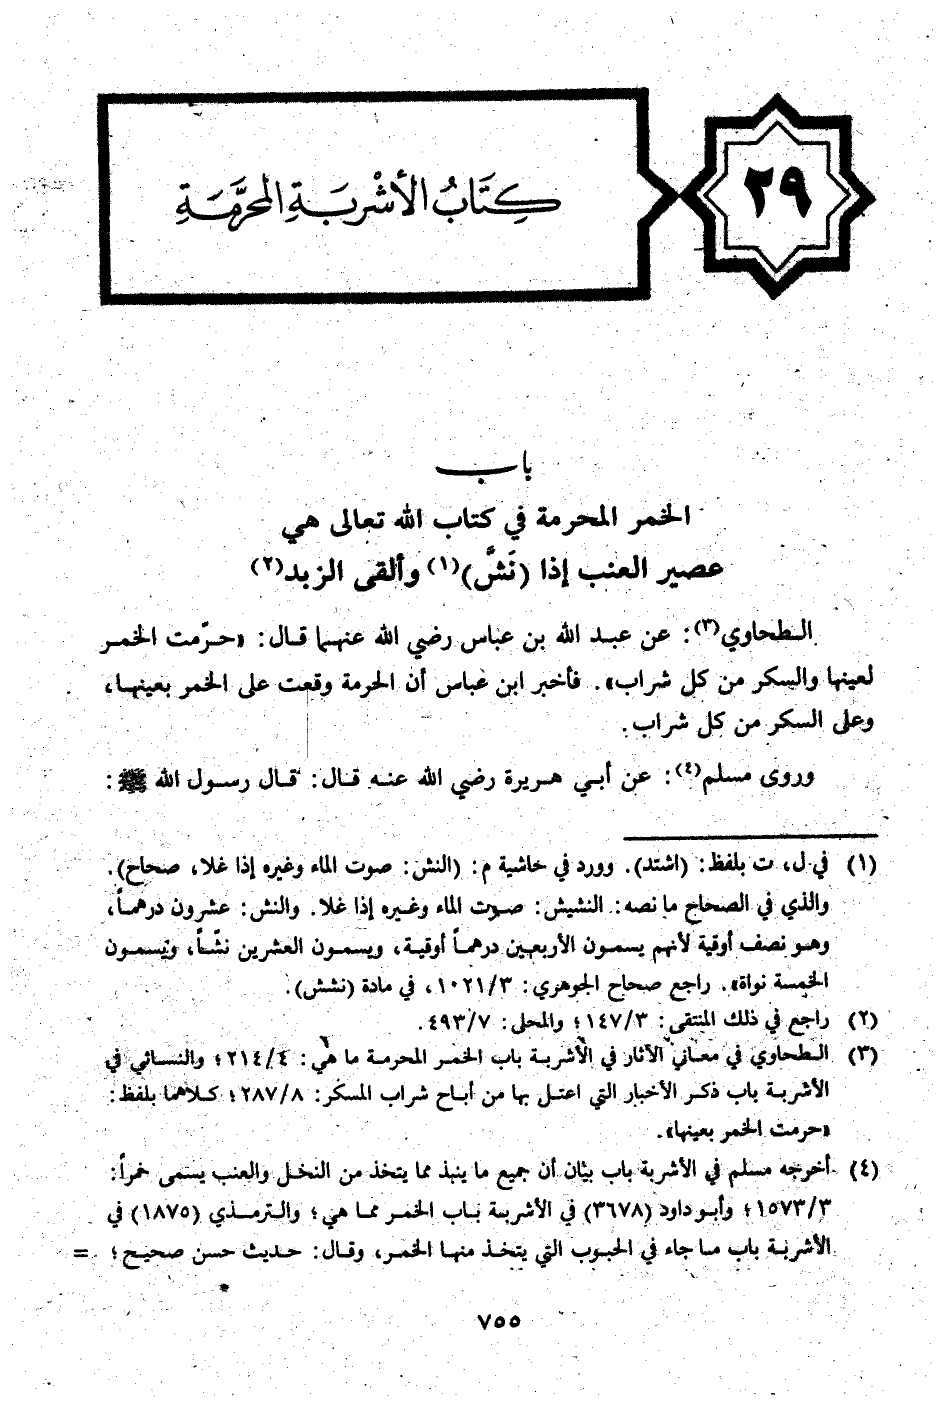 ٢٩
كِتَابُ الأَشْرِبَةِ المحَرَّمَةِ
باب
الخمر المحرمة في كتاب الله تعالى هي
عصير العنب إذا (نَشَّ)(١) وألقى الزبد(٢)
الطحاوي(٣): عن عبد الله بن عباس رضي الله عنهما قال: «حرّمت الخمر
لعينها والسكر من كل شراب». فأخبر ابن عباس أن الحرمة وقعت على الخمر بعينها،
وعلى السكر من كل شراب.
وروى مسلم(٤): عن أبي هريرة رضي الله عنه قال: قال رسول الله ﷺ:
(١) في ل، ت بلفظ: (اشتد). وورد في حاشية م: (النش: صوت الماء وغيره إذا غلا، صحاح).
والذي في الصحاح ما نصه: النشيش: صوت الماء وغيره إذا غلا. والنش: عشرون درهماً،
وهو نصف أوقية لأنهم يسمون الأربعين درهماً أوقية، ويسمون العشرين نشّاً، ويسمون
الخمسة نواة». راجع صحاح الجوهري: ١٠٢١/٣، في مادة (نشش).
(٢) راجع في ذلك المنتقى: ١٤٧/٣؛ والمحلى: ٤٩٣/٧.
(٣) الطحاوي في معاني الآثار في الأشربة باب الخمر المحرمة ما هي: ٢١٤/٤؛ والنسائي في
الأشربة باب ذكر الأخبار التي اعتل بها من أباح شراب المسكر: ٢٨٧/٨؛ كلاهما بلفظ:
«حرمت الخمر بعينها».
(٤) أخرجه مسلم في الأشربة باب بيان أن جميع ما ينبذ مما يتخذ من النخل والعنب يسمى خمراً:
١٥٧٣/٣؛ وأبو داود (٣٦٧٨) في الأشربة باب الخمر مما هي؛ والترمذي (١٨٧٥) في
الأشربة باب ما جاء في الحبوب التي يتخذ منها الخمر، وقال: حديث حسن صحيح؛ =
٧٥٥